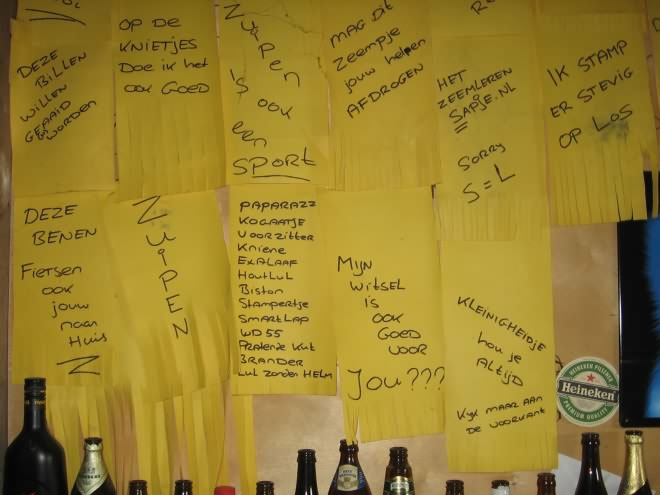 DEZE
BILLEN
WILLEN
GEAAID
WORDEN
OP DE
KNIETJES
DOE IK HET
OOK GOED
ZUIPEN
IS
OOK
een
SPORT
MAG DIT
Zeempje
jouw helpen
AFDROGEN
RE
HET
ZEEMLEREN
SAPJE.NL
SORRY
S=L
IK STAMP
ER STEVIG
OP LOS
DEZE
BENEN
FIETSEN
OOK
jouw
naar
Huis
Z
ZUIPEN
PAPARAZZ
KOGAATJE
VOORZITTER
KNIENE
EXALAAF
HOUTLUL
Biston
Stampertje
SMARTLAP
WD 55
PRATENDE KUT
BRANDER
LUL ZONDER HELM
MIJN
WITSEL
IS
OOK
GOED
VOOR
JOU???
KLEINIGHEIDJE
hou je
ALTIJD
KIJK MAAR AAN
DE VOORKANT
HEINEKEN PILSENER
Heineken
PREMIUM QUALITY